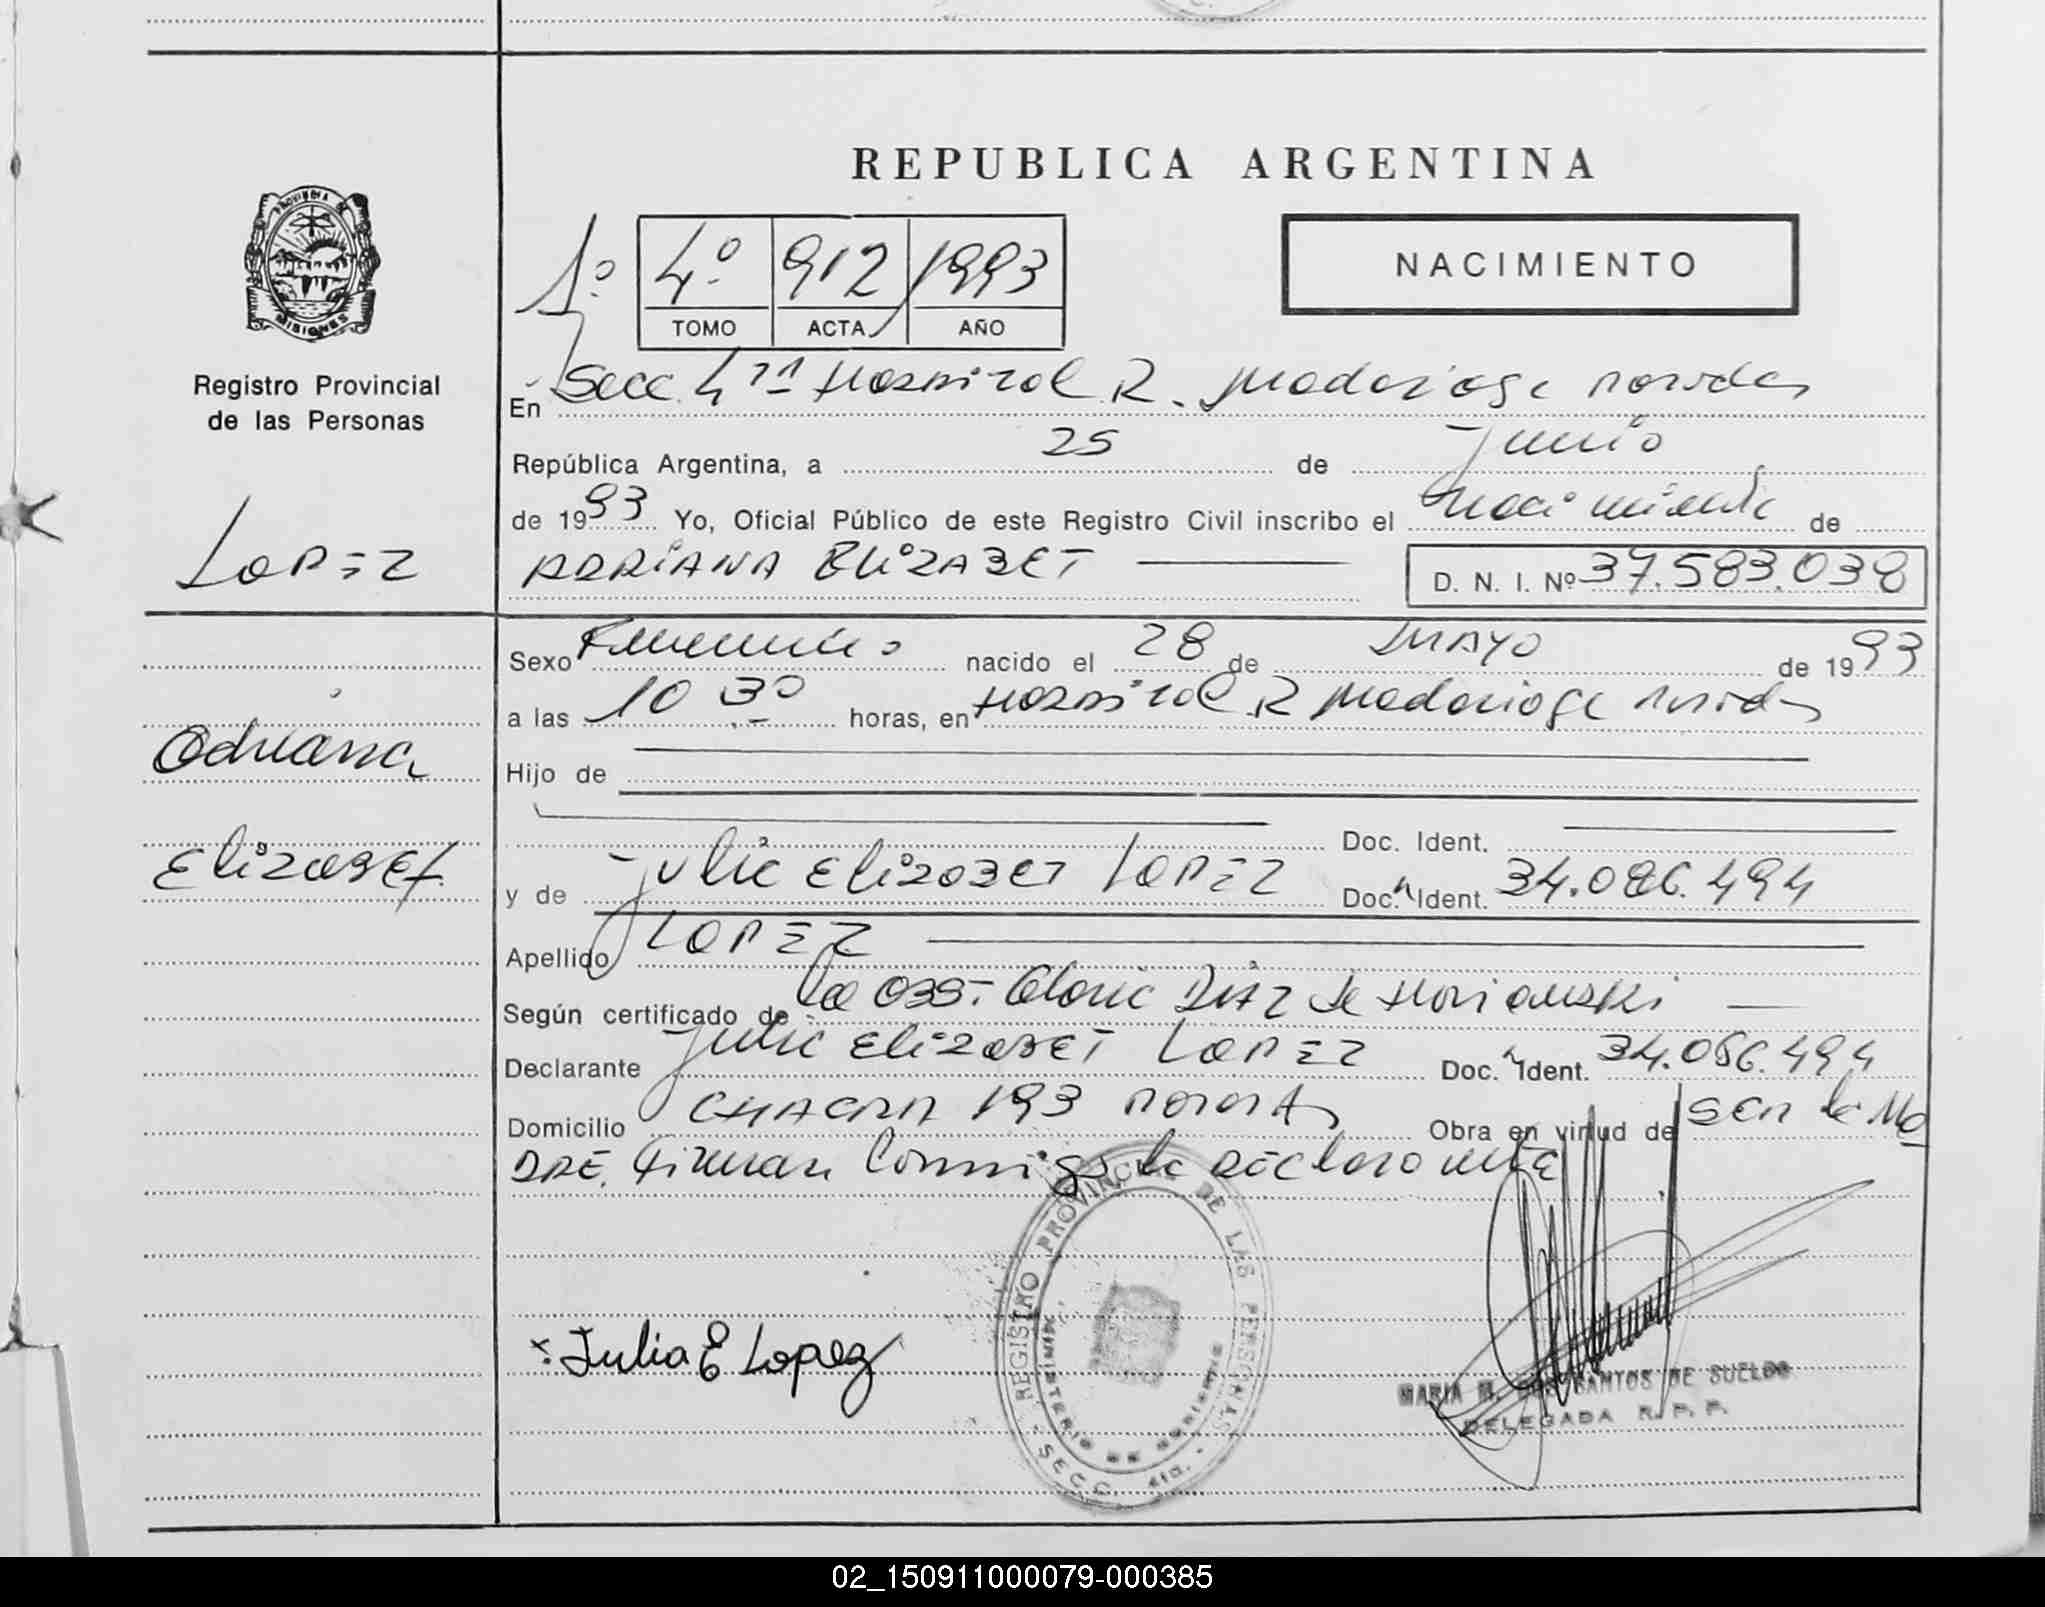 REPUBLICA ARGENTINA
PROVINCIA DE
MISIONES
1º
4º 912 1993
TOMO ACTA AÑO
NACIMIENTO
Registro Provincial
de las Personas
En Secc. 4ta Hospital R. Madariaga Posadas
República Argentina, a 25 de Junio
de 1993 Yo, Oficial Público de este Registro Civil inscribo el nacimiento de
LOPEZ
ADRIANA ELIZABET
D. N. I. Nº 37.583.038
Sexo Femenino nacido el 28 de MAYO de 1993
a las 10 30 horas, en Hospital R Madariaga Posadas
Adriana
Hijo de
Doc. Ident.
Elizabet
y de Julia Elizabet LOPEZ Doc. Ident. 34.086.494
Apellido LOPEZ
Según certificado de la OBST. Gloria DIAZ de
Declarante Julia Elizabet LOPEZ Doc. Ident. 34.086.494
Domicilio CHACRA 193 Posadas Obra en virtud de ser la MA
DRE. Firman Conmigo la declarante
REGISTRO PROVINCIAL DE LAS PERSONAS
MINISTERIO DE GOBIERNO
SECC. 4ta.
Julia E Lopez
MARIA M. DOS SANTOS DE SUELDO
DELEGADA R. P. P.
02_150911000079-000385